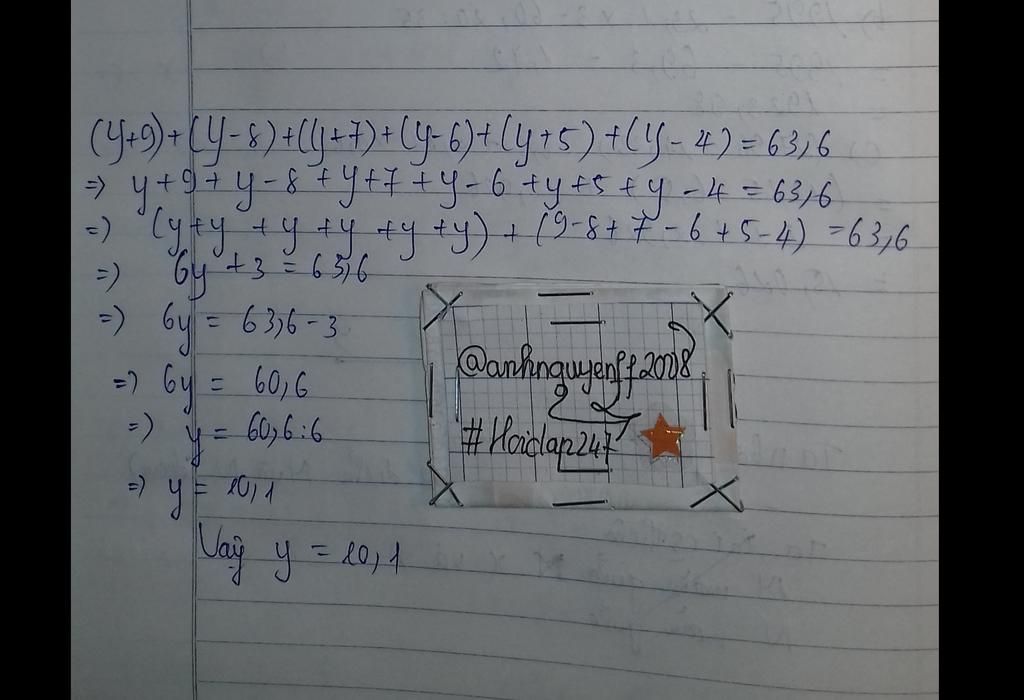 (y+9)+(y-8)+(y+7)+(y-6)+(y+5)+(y-4)=63,6
=> y+9+y-8+y+7+y-6+y+5+y-4=63,6
=> (y+y+y+y+y+y)+(9-8+7-6+5-4)=63,6
=> 6y+3=63,6
=> 6y=63,6-3
=> 6y=60,6
=> y=60,6:6
=> y=10,1
Vậy y=10,1
@anhnguyenff2008
#Hoidap247